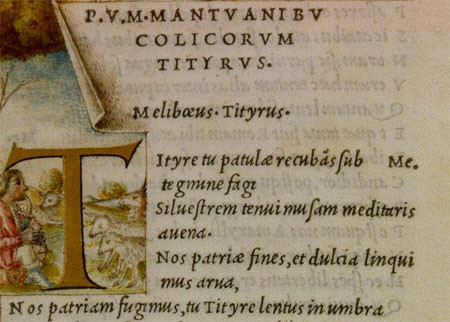 P. V. M. MANTVANI BV
COLICORVM
TITYRVS.
Melibœus. Tityrus.
Tityre tu patulæ recubãs sub Me.
tegmine fagi
Siluestrem tenui musam meditaris
auena.
Nos patriæ fines, et dulcia linqui
mus arua,
Nos patriam fugimus, tu Tityre lentus in umbra